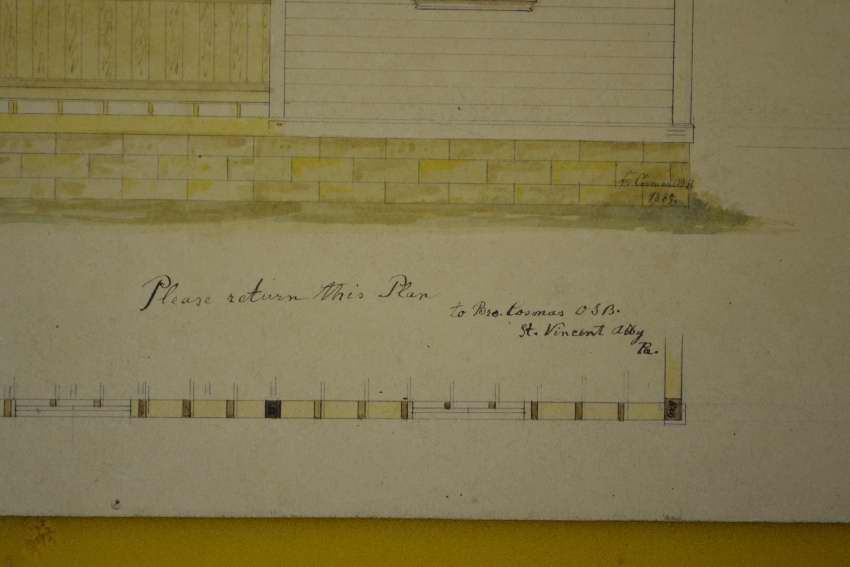 Br Cosmas OSB
1869.
Please return this Plan
to Bro. Cosmas O S B.
St. Vincent Abby
Pa.